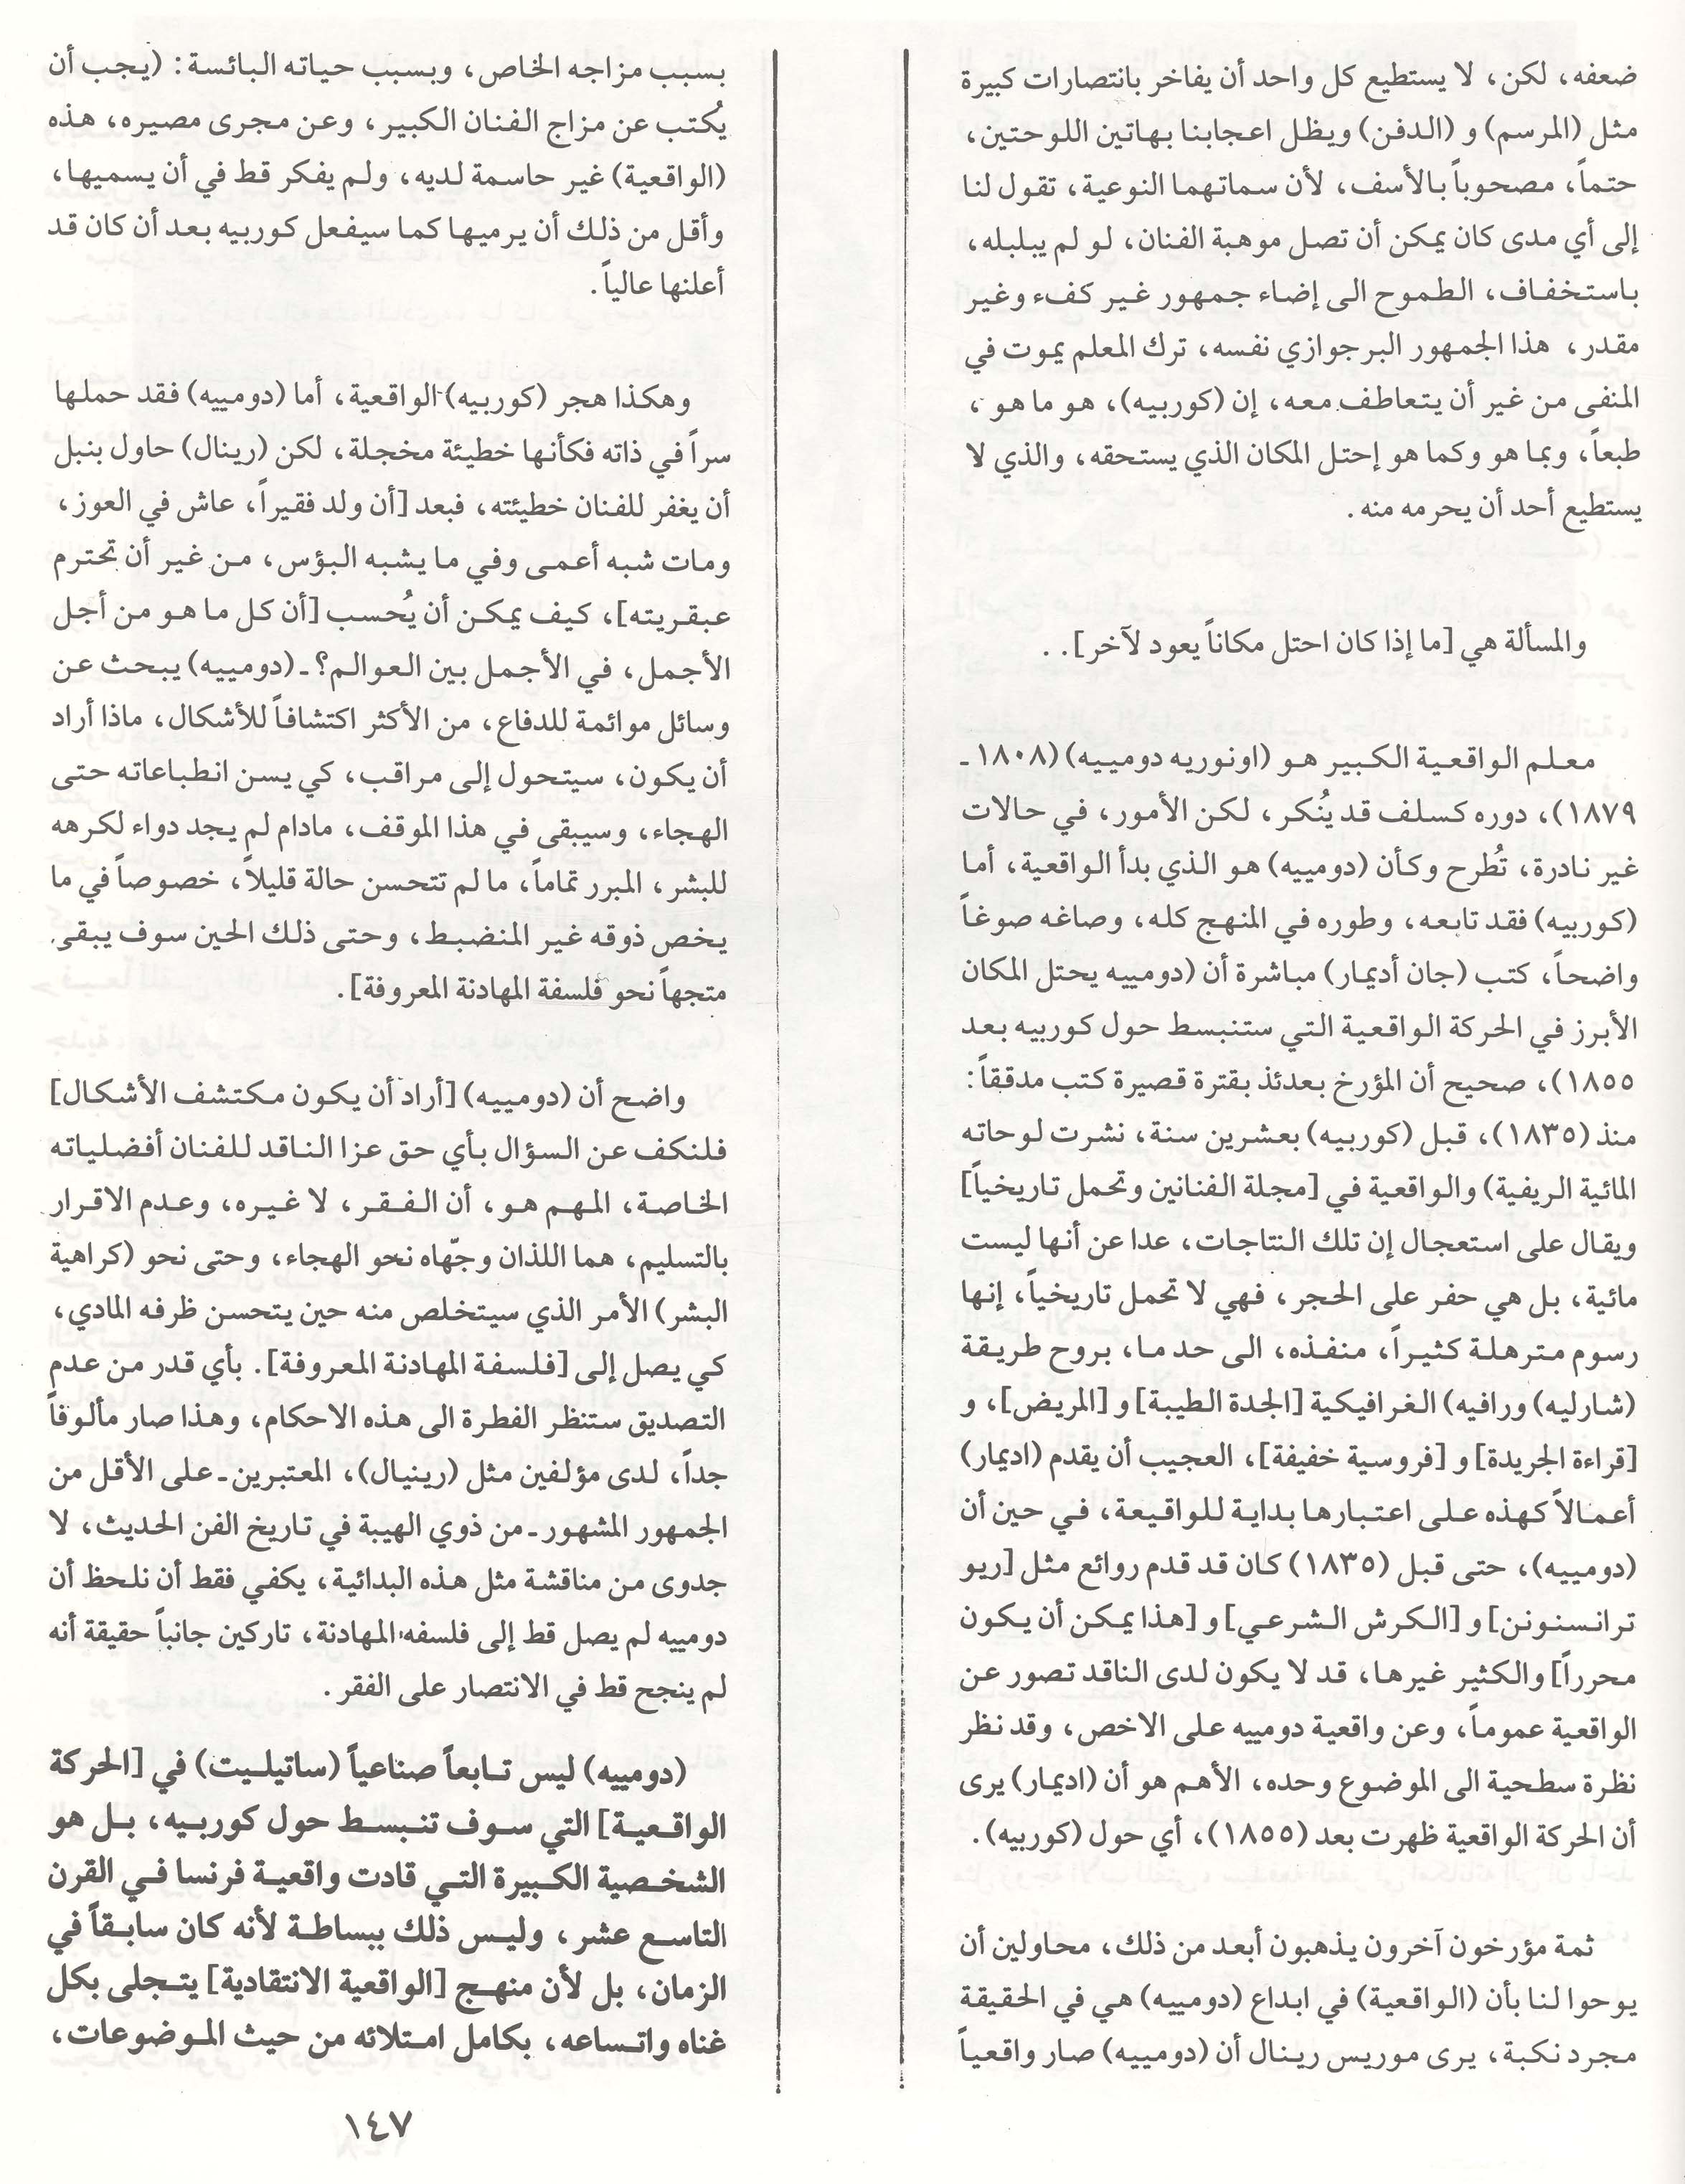 ضعفه، لكن، لا يستطيع كل واحد أن يفاخر بانتصارات كبيرة
مثل (المرسم) و (الدفن) ويظل اعجابنا بهاتين اللوحتين،
حتماً، مصحوباً بالأسف، لأن سماتهما النوعية، تقول لنا
إلى أي مدى كان يمكن أن تصل موهبة الفنان، لو لم يبلبله،
باستخفاف، الطموح الى إضاء جمهور غير كفء وغير
مقدر، هذا الجمهور البرجوازي نفسه، ترك المعلم يموت في
المنفى من غير أن يتعاطف معه، إن (كوربيه)، هو ما هو،
طبعاً، وبما هو وكما هو إحتل المكان الذي يستحقه، والذي لا
يستطيع أحد أن يحرمه منه.
والمسألة هي [ما إذا كان احتل مكاناً يعود لآخر]..
معلم الواقعية الكبير هو (اونوريه دومييه) (١٨٠٨ ـ
١٨٧٩)، دوره كسلف قد يُنكر، لكن الأمور، في حالات
غير نادرة، تُطرح وكأن (دومييه) هو الذي بدأ الواقعية، أما
(كوربيه) فقد تابعه، وطوره في المنهج كله، وصاغه صوغاً
واضحاً، كتب (جان أديمار) مباشرة أن (دومييه يحتل المكان
الأبرز في الحركة الواقعية التي ستنبسط حول كوربيه بعد
١٨٥٥)، صحيح أن المؤرخ بعدئذ بقترة قصيرة كتب مدققاً:
منذ (١٨٣٥)، قبل (كوربيه) بعشرين سنة، نشرت لوحاته
المائية الريفية) والواقعية في [مجلة الفنانين وتحمل تاريخياً]
ويقال على استعجال إن تلك النتاجات، عدا عن أنها ليست
مائية، بل هي حفر على الحجر، فهي لا تحمل تاريخياً، إنها
رسوم مترهلة كثيراً، منفذه، الى حد ما، بروح طريقة
(شارليه) ورافيه) الغرافيكية [الجدة الطيبة] و [المريض]، و
[قراءة الجريدة] و [فروسية خفيفة]، العجيب أن يقدم (اديمار)
أعمالاً كهذه على اعتبارها بداية للواقيعة، في حين أن
(دومييه)، حتى قبل (١٨٣٥) كان قد قدم روائع مثل [ريو
ترانسنونن] و [الكرش الشرعي] و [هذا يمكن أن يكون
محرراً] والكثير غيرها، قد لا يكون لدى الناقد تصور عن
الواقعية عموماً، وعن واقعية دومييه على الاخص، وقد نظر
نظرة سطحية الى الموضوع وحده، الأهم هو أن (اديمار) يرى
أن الحركة الواقعية ظهرت بعد (١٨٥٥)، أي حول (كوربيه).
ثمة مؤرخون آخرون يذهبون أبعد من ذلك، محاولين أن
يوحوا لنا بأن (الواقعية) في ابداع (دومييه) هي في الحقيقة
مجرد نكبة، يرى موريس رينال أن (دومييه) صار واقعياً
بسبب مزاجه الخاص، وبسبب حياته البائسة: (يجب أن
يُكتب عن مزاج الفنان الكبير، وعن مجرى مصيره، هذه
(الواقعية) غير حاسمة لديه، ولم يفكر قط في أن يسميها،
وأقل من ذلك أن يرميها كما سيفعل كوربيه بعد أن كان قد
أعلنها عالياً.
وهكذا هجر (كوربيه) الواقعية، أما (دومييه) فقد حملها
سراً في ذاته فكأنها خطيئة مخجلة، لكن (رينال) حاول بنبل
أن يغفر للفنان خطيئته، فبعد [أن ولد فقيراً، عاش في العوز،
ومات شبه أعمى وفي ما يشبه البؤس، من غير أن تحترم
عبقريته]، كيف يمكن أن يُحسب [أن كل ما هو من أجل
الأجمل، في الأجمل بين العوالم؟ ـ (دومييه) يبحث عن
وسائل موائمة للدفاع، من الأكثر اكتشافاً للأشكال، ماذا أراد
أن يكون، سيتحول إلى مراقب، كي يسن انطباعاته حتى
الهجاء، وسيبقى في هذا الموقف، مادام لم يجد دواء لكرهه
للبشر، المبرر تماماً، ما لم تتحسن حالة قليلاً، خصوصاً في ما
يخص ذوقه غير المنضبط، وحتى ذلك الحين سوف يبقى
متجهاً نحو فلسفة المهادنة المعروفة].
واضح أن (دومييه) [أراد أن يكون مكتشف الأشكال]
فلنكف عن السؤال بأي حق عزا الناقد للفنان أفضلياته
الخاصة، المهم هو، أن الفقر، لا غيره، وعدم الاقرار
بالتسليم، هما اللذان وجّهاه نحو الهجاء، وحتى نحو (كراهية
البشر) الأمر الذي سيتخلص منه حين يتحسن ظرفه المادي،
كي يصل إلى [فلسفة المهادنة المعروفة]. بأي قدر من عدم
التصديق ستنظر الفطرة الى هذه الاحكام، وهذا صار مألوفاً
جداً، لدى مؤلفين مثل (رينيال)، المعتبرين ـ على الأقل من
الجمهور المشهور ـ من ذوي الهيبة في تاريخ الفن الحديث، لا
جدوى من مناقشة مثل هذه البدائية، يكفي فقط أن نلحظ أن
دومييه لم يصل قط إلى فلسفه المهادنة، تاركين جانباً حقيقة أنه
لم ينجح قط في الانتصار على الفقر.
(دومييه) ليس تابعاً صناعياً (ساتيليت) في [الحركة
الواقعية] التي سوف تنبسط حول كوربيه، بل هو
الشخصية الكبيرة التي قادت واقعية فرنسا في القرن
التاسع عشر، وليس ذلك ببساطة لأنه كان سابقاً في
الزمان، بل لأن منهج [الواقعية الانتقادية] يتجلى بكل
غناه واتساعه، بكامل امتلائه من حيث الموضوعات،
١٤٧